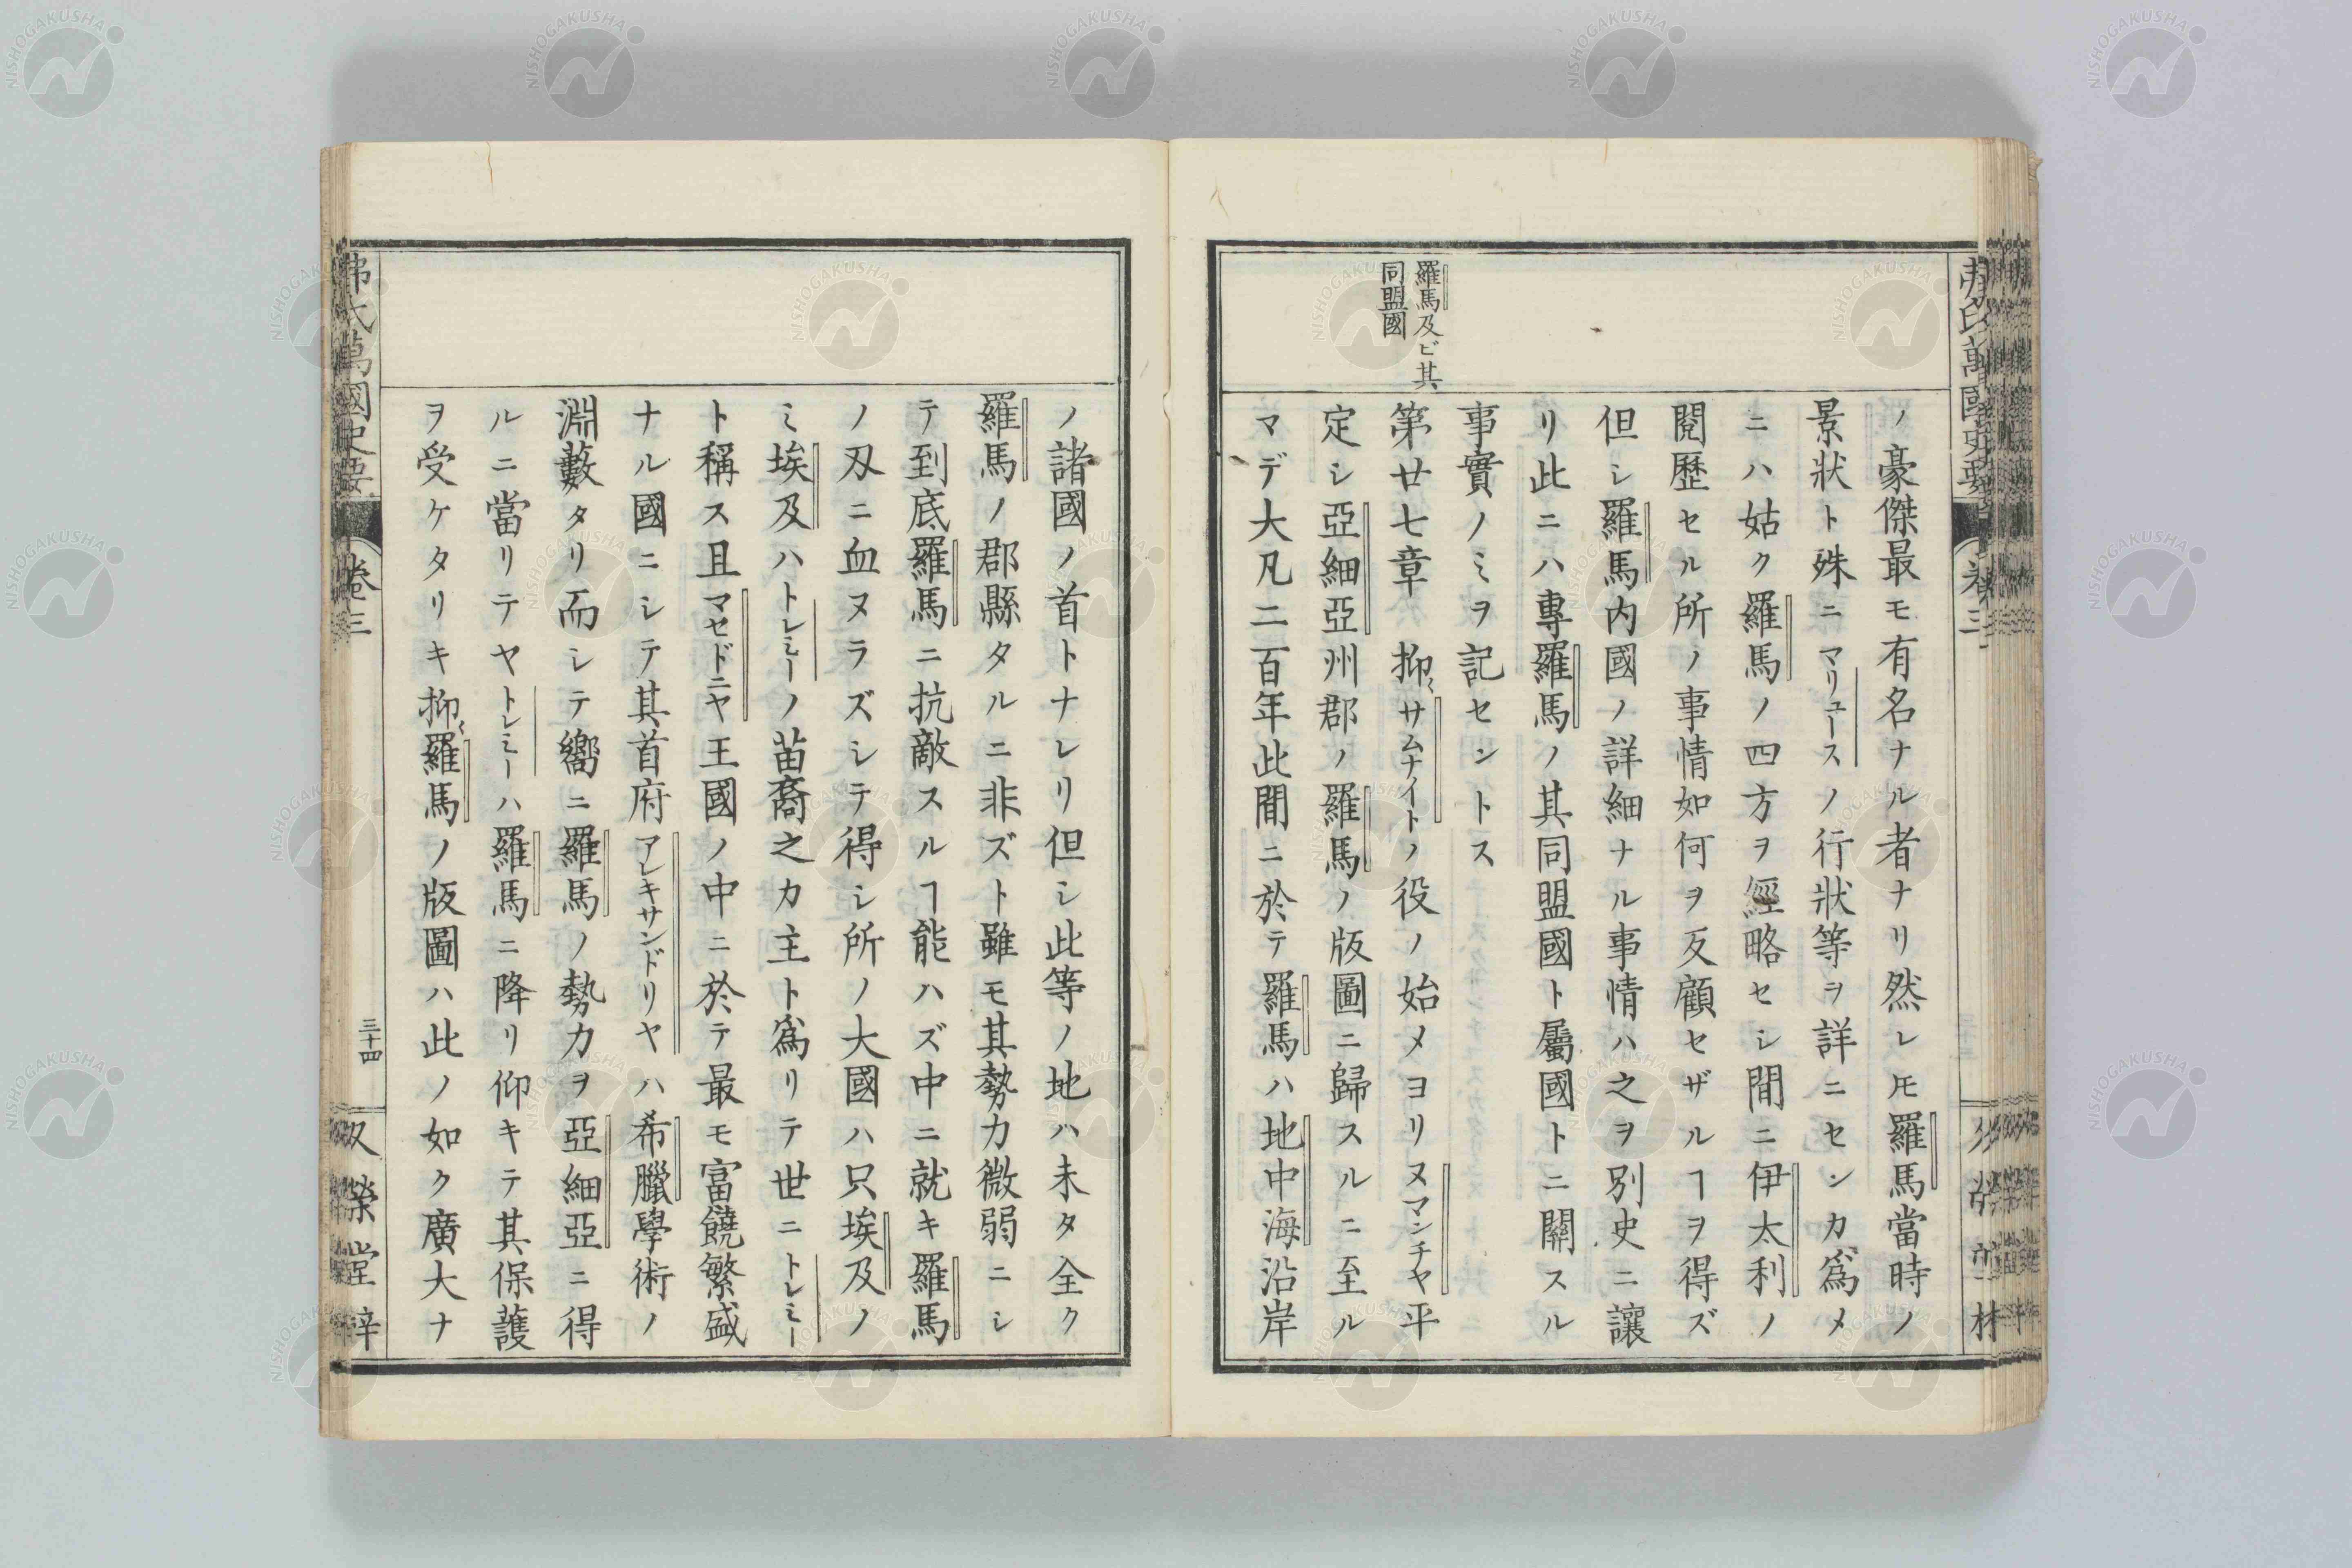 ノ豪傑最モ有名ナル者ナリ然レ𪜈羅馬當時ノ
景狀ト殊ニマリユースノ行狀等ヲ詳ニセンカ爲メ
ニハ姑ク羅馬ノ四方ヲ經略セシ間ニ伊太利ノ
閱歷セル所ノ事情如何ヲ反顧セザルヿヲ得ズ
但シ羅馬内國ノ詳細ナル事情ハ之ヲ別史ニ讓
リ此ニハ專羅馬ノ其同盟國ト屬國トニ關スル
事實ノミヲ記セントス
羅馬及ビ其
同盟國
第廿七章 抑〻サムナイトノ役ノ始メヨリヌマンチヤ平
定シ亞細亞州郡ノ羅馬ノ版圖ニ歸スルニ至ル
マデ大凡二百年此間ニ於テ羅馬ハ地中海沿岸
ノ諸國ノ首トナレリ但シ此等ノ地ハ未タ全ク
羅馬ノ郡縣タルニ非ズト雖モ其勢力微弱ニシ
テ到底羅馬ニ抗敵スルヿ能ハズ中ニ就キ羅馬
ノ刄ニ血ヌラズシテ得シ所ノ大國ハ只埃及ノ
ミ埃及ハトレミーノ苗裔之カ主ト爲リテ世ニトレミー
ト稱ス且マセドニヤ王國ノ中ニ於テ最モ富饒繁盛
ナル國ニシテ其首府アレキサンドリヤハ希臘學術ノ
淵藪タリ而シテ嚮ニ羅馬ノ勢力ヲ亞細亞ニ得
ルニ當リテヤトレミーハ羅馬ニ降リ仰キテ其保護
ヲ受ケタリキ抑〻羅馬ノ版圖ハ此ノ如ク廣大ナ
弗氏萬國史要
卷三
三十四
又榮堂梓
NISHOGAKUSHA